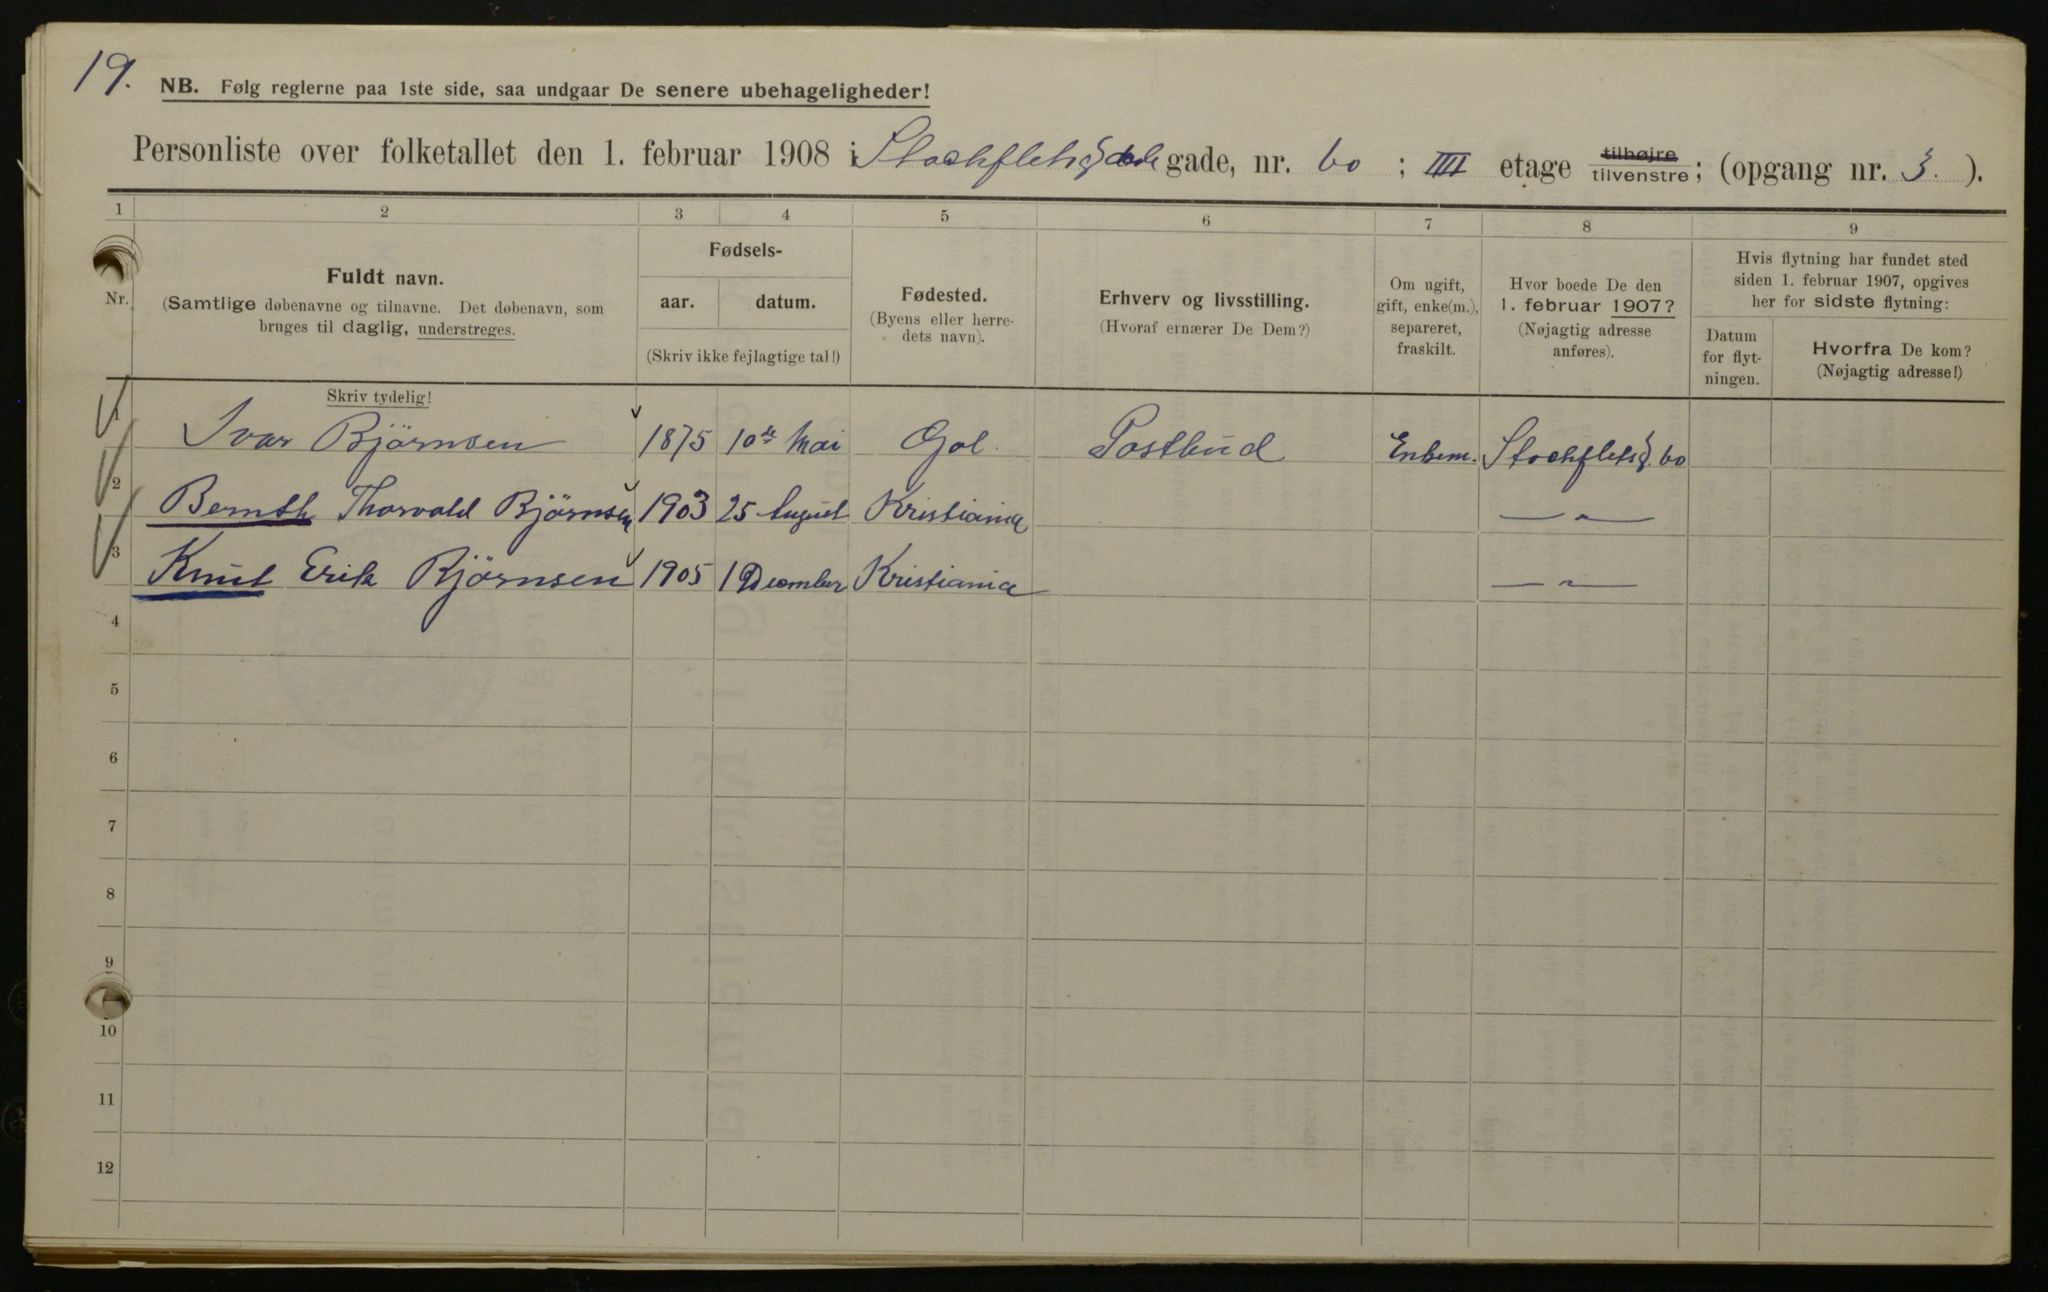 19.
NB. Følg reglerne paa 1ste side, saa undgaar De senere ubehageligheder!
Personliste over folketallet den 1. februar 1908 i Stockfletsgade gade, nr. 60 ; IIII etage tilhøjre tilvenstre ; (opgang nr. 3. ).
1 2 3 4 5 6 7 8 9
Nr.
Fuldt navn.
(Samtlige døbenavne og tilnavne. Det døbenavn, som
bruges til daglig, understreges.
Skriv tydelig!
Fødsels-
aar. datum.
(Skriv ikke fejlagtige tal!)
Fødested.
(Byens eller herre-
dets navn).
Erhverv og livsstilling.
(Hvoraf ernærer De Dem?)
Om ugift,
gift, enke(m.),
separeret,
fraskilt.
Hvor boede De den
1. februar 1907?
(Nøjagtig adresse
anføres).
Hvis flytning har fundet sted
siden 1. februar 1907, opgives
her for sidste flytning:
Datum
for flyt-
ningen.
Hvorfra De kom?
(Nøjagtig adresse!)
1 Ivar Bjørnsen 1875 10de Mai Gol. Postbud Enkem. Stockfletsg. 60
2 Bernth Thorvald Bjørnsen 1903 25 August Kristiania — " —
3 Knut Erik Bjørnsen 1905 1 December Kristiania — " —
4
5
6
7
8
9
10
11
12